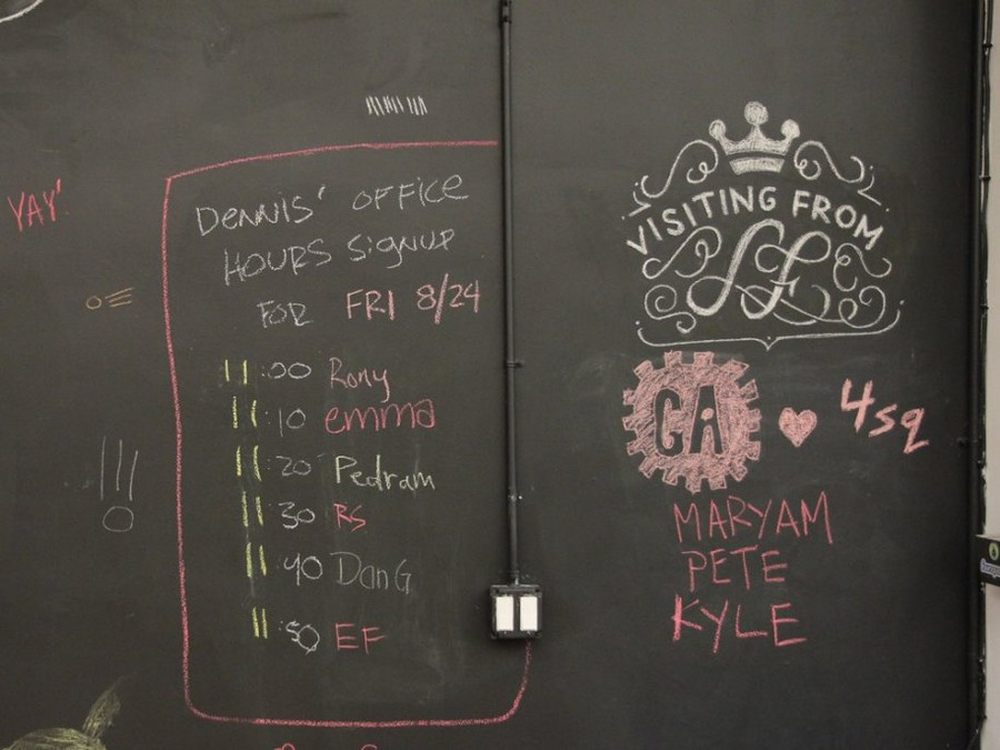 YAY!
DENNIS' OFFICE
HOURS SIGNUP
FOR FRI 8/24
11:00 Rony
11:10 emma
11:20 Pedram
11:30 RS
11:40 DanG
11:50 EF
VISITING FROM
SF
GA ♥ 4sq
MARYAM
PETE
KYLE